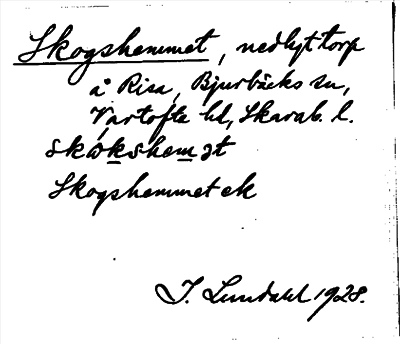 Skogshemmet, nedlagt torp
å Risa, Bjurbäcks sn,
Vartofte hd, Skarab. l.
skωkshemət
Skogshemmet ek
I. Lundahl 1928.